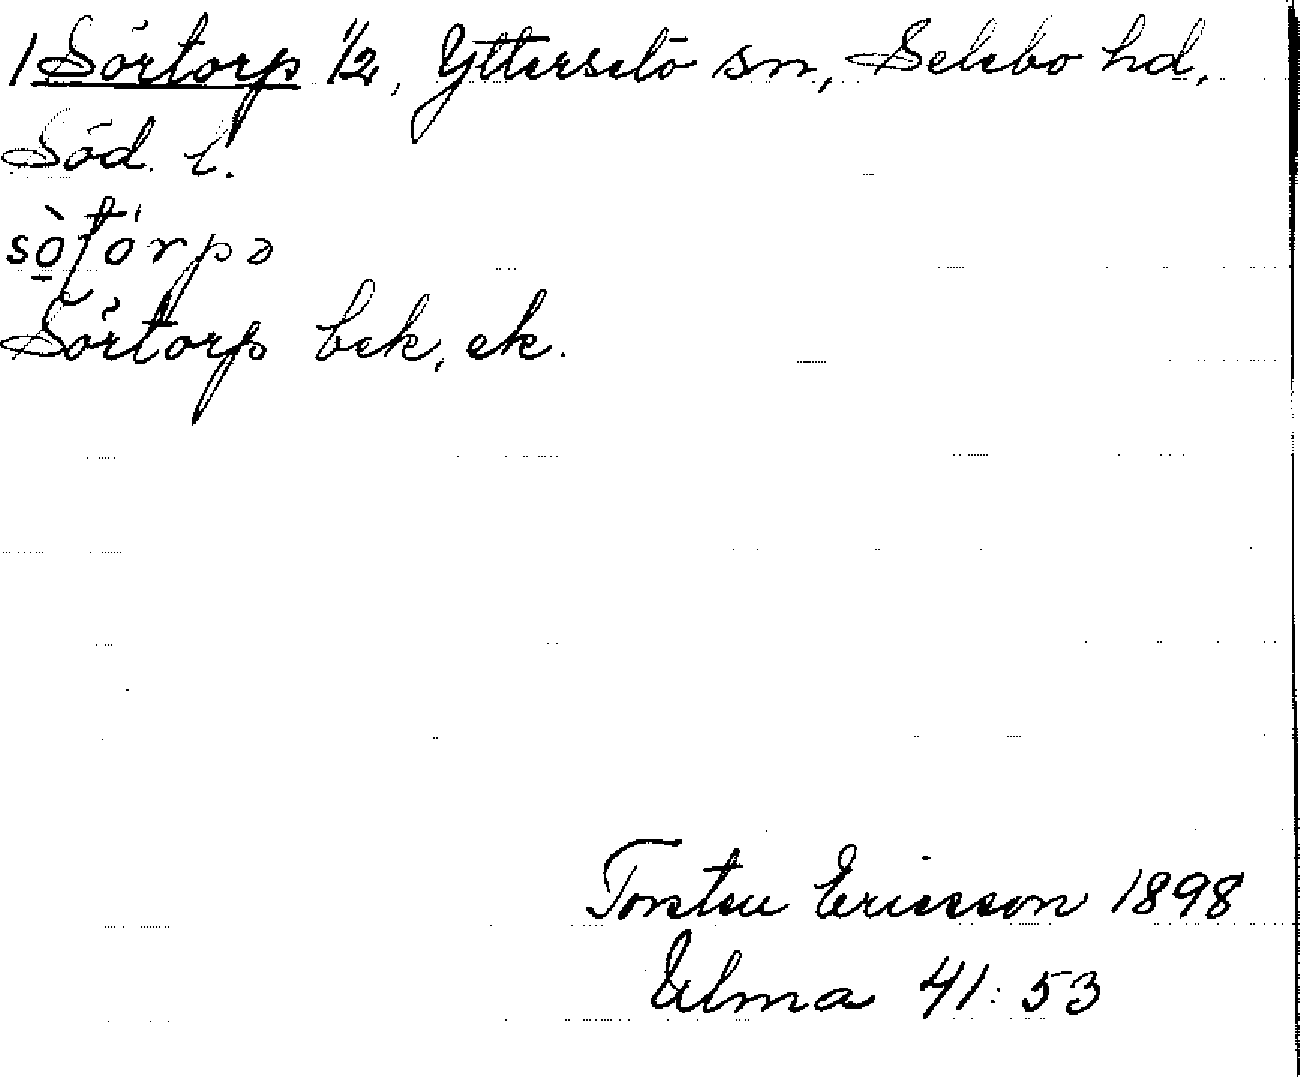 1 Sörtorp 1/2, Ytterselö sn, Selebo hd,
Söd. l.
sò̱tórpə
Sörtorp bek, ek.
Torsten Ericsson 1898
Ulma 41:53